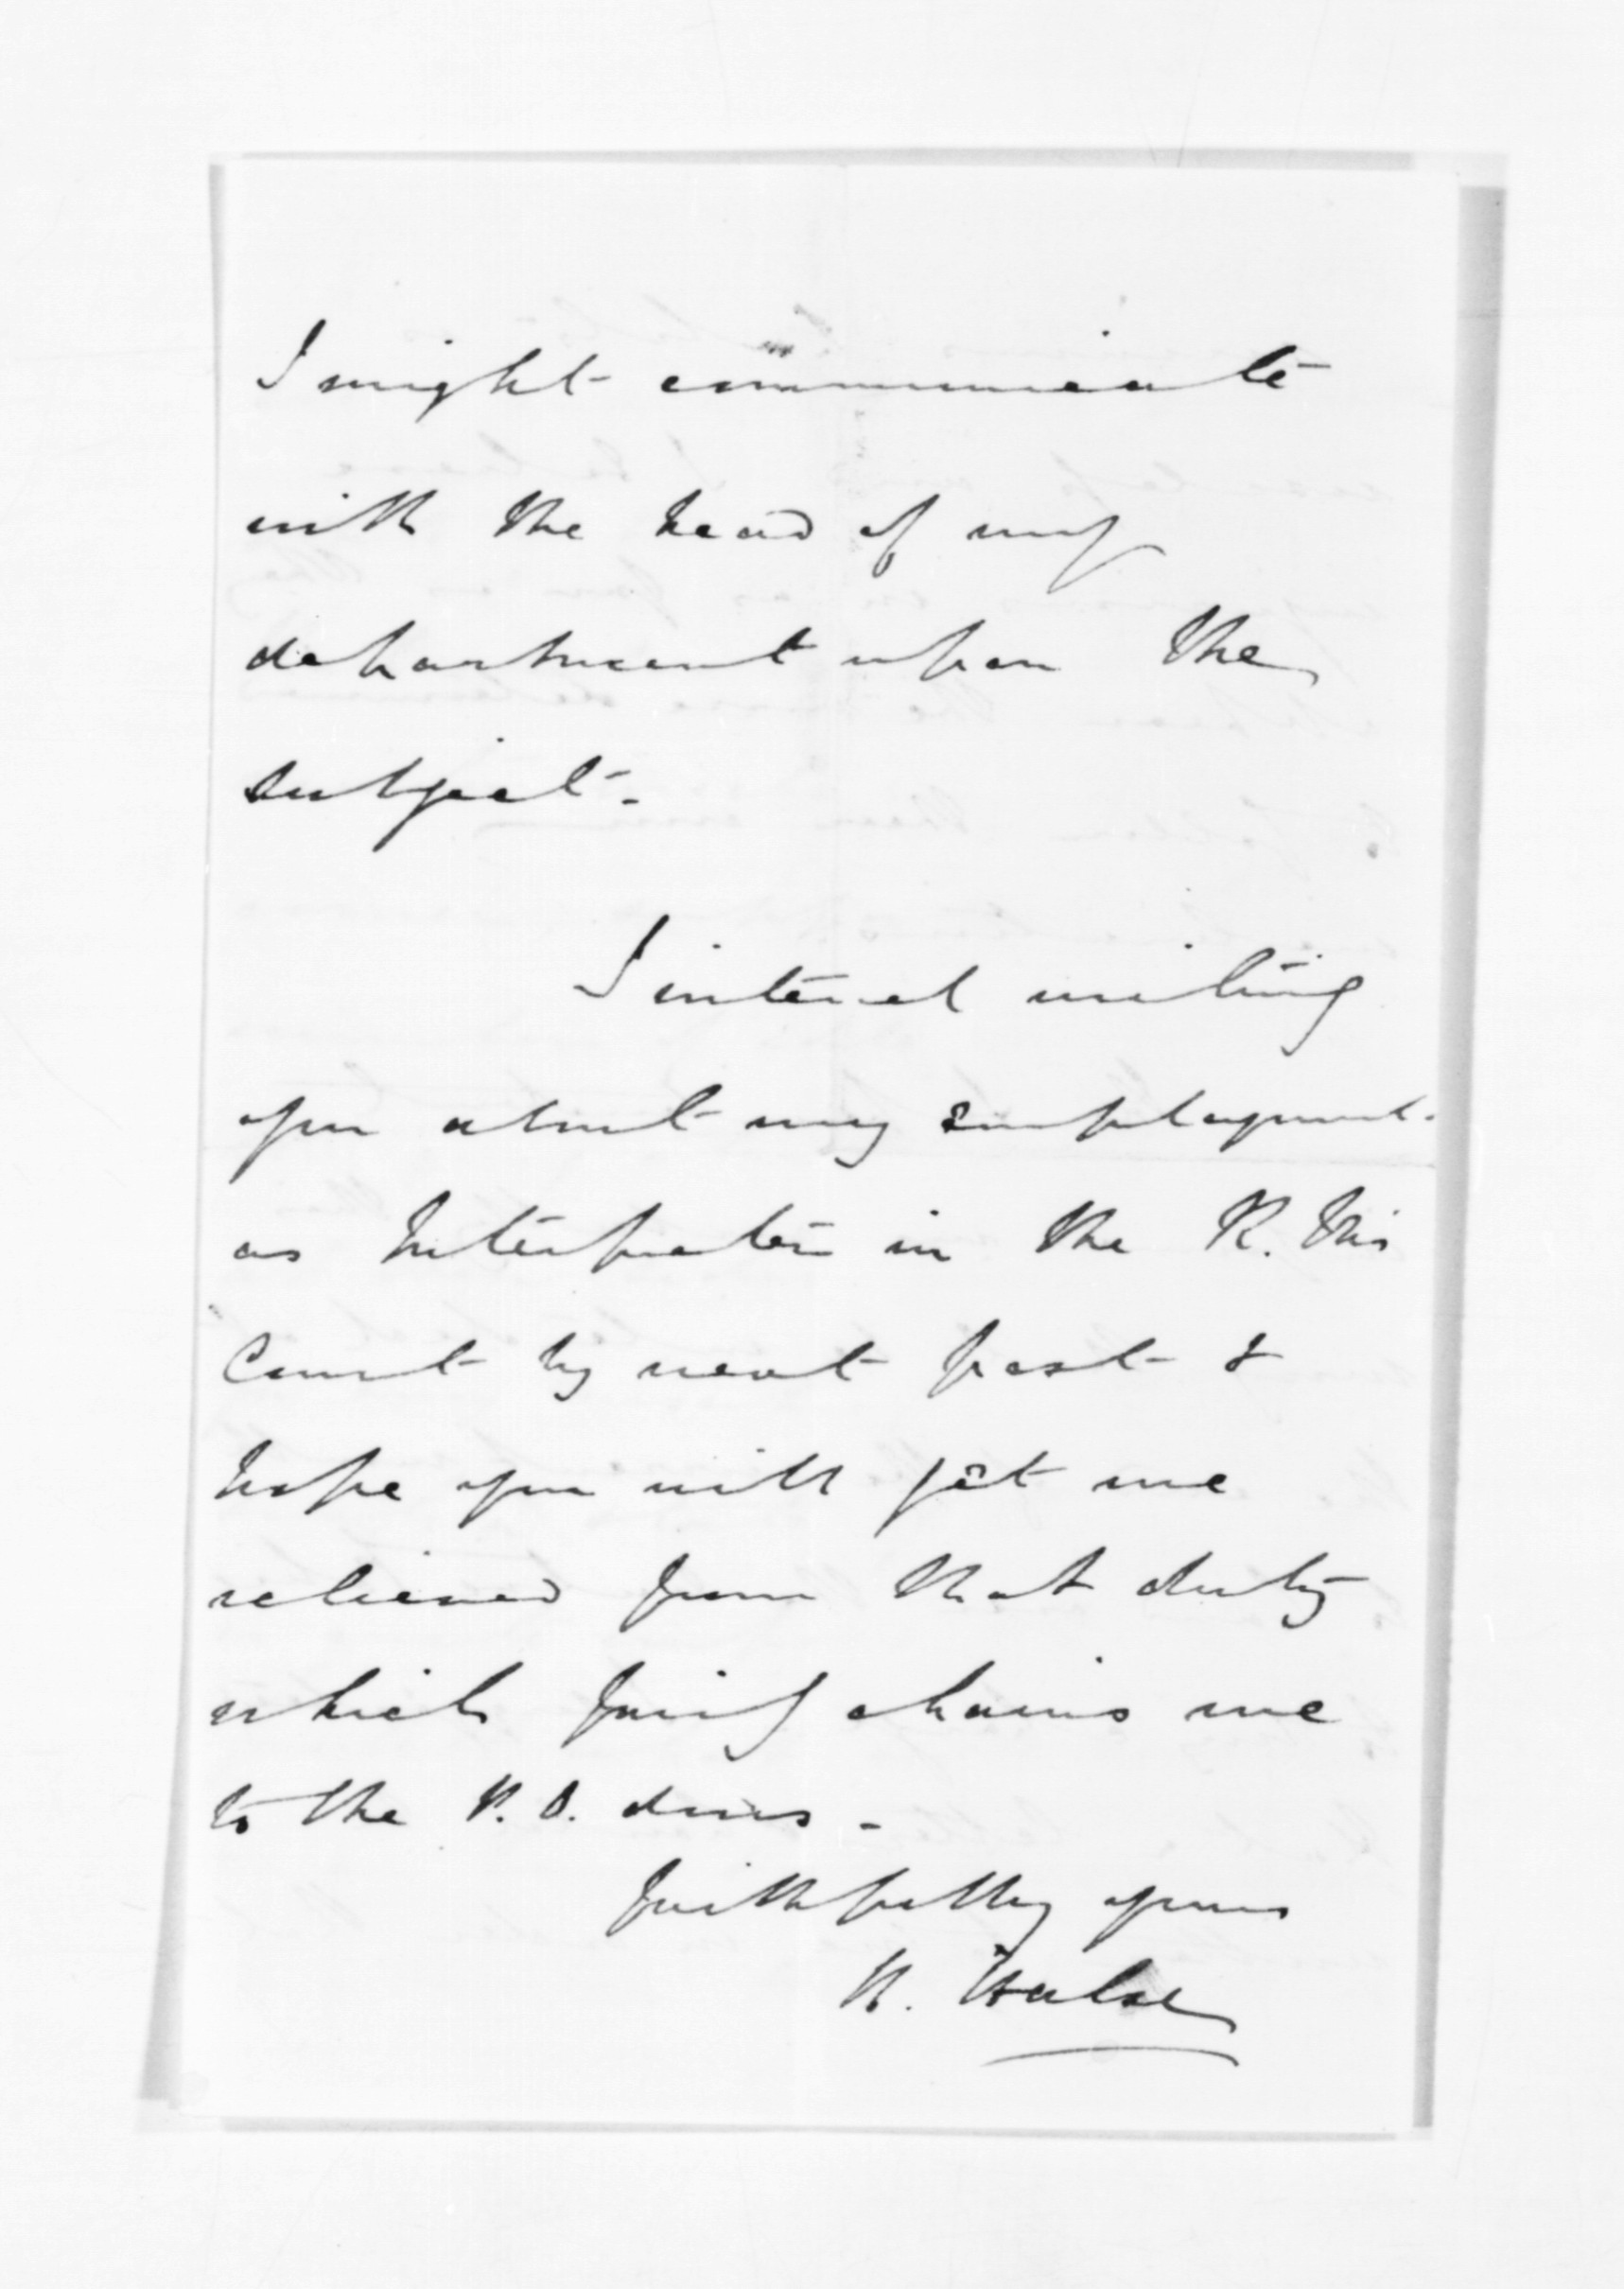 I might communicate
with the head of my
department upon the
subject.
I intend writing
you about my employment
as Interpreter in the R. M's
Court by next post &
hope you will get me
relieved from that duty
which fairly chains me
to the P. O. doors.
Faithfully yours
H. Halse